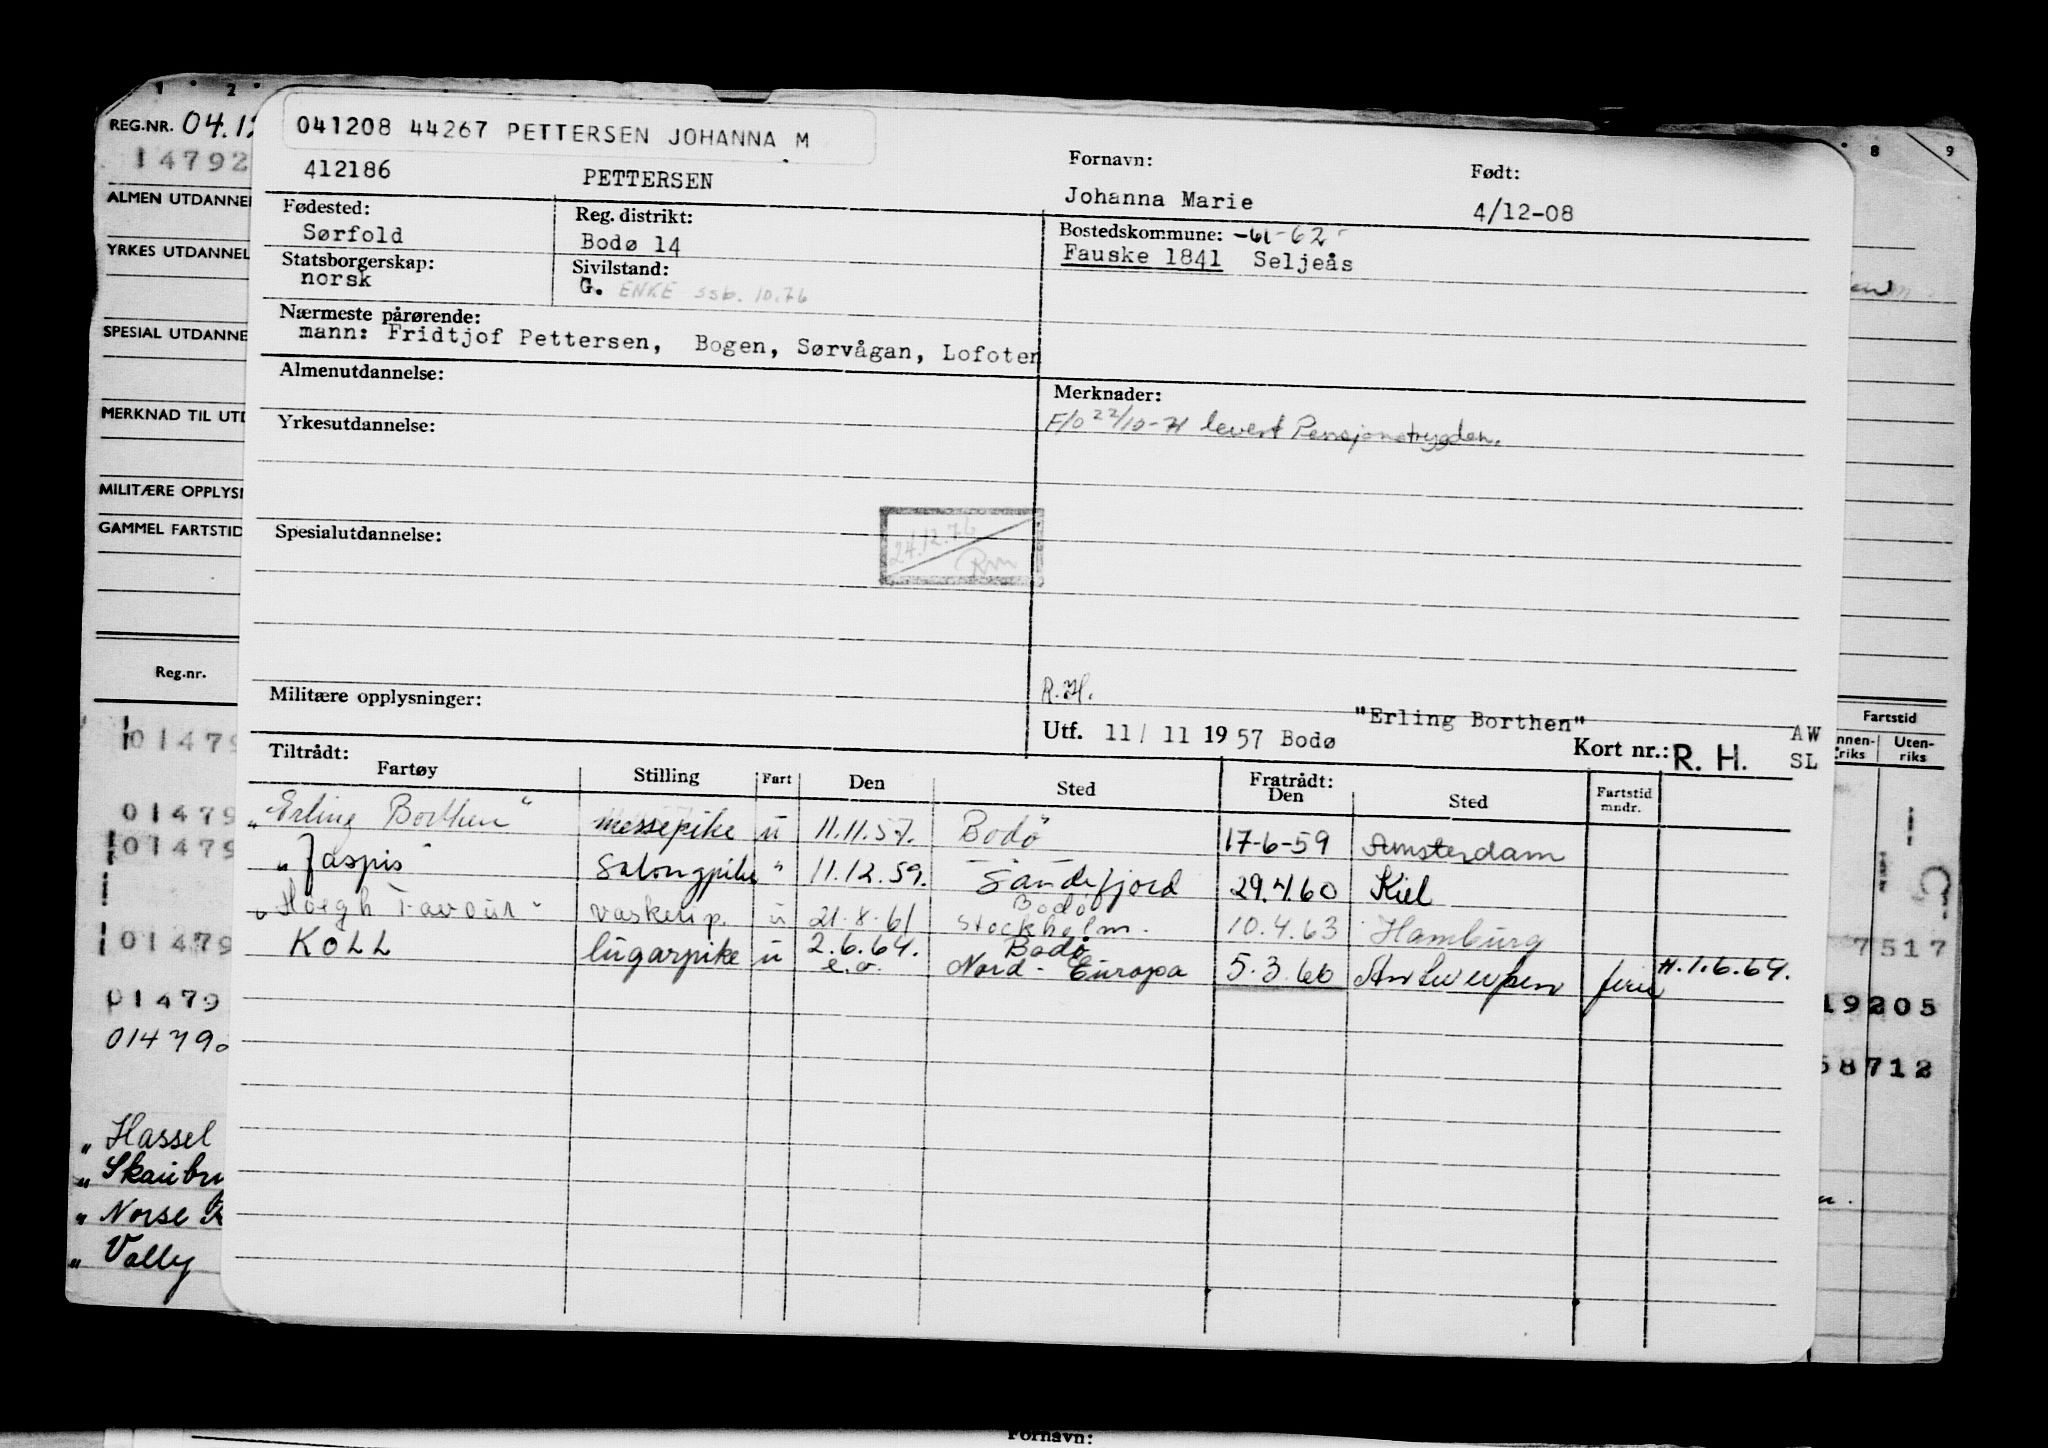 1 2 8 9
REG.NR. 04.12
14792
041208 44267 PETTERSEN JOHANNA M
412186 PETTERSEN
Fornavn:
Johanna Marie
Født:
4/12-08
Fødested:
Sørfold
Reg. distrikt:
Bodø 14
Bostedskommune: -61-62
Fauske 1841 Seljeås
Statsborgerskap:
norsk
Sivilstand:
G. ENKE SSB. 10.76
Nærmeste pårørende:
mann: Fridtjof Pettersen, Bogen, Sørvågan, Lofoten
Almenutdannelse:
Merknader:
F/o 22/10-71 levert Pensjonstrygden.
Yrkesutdannelse:
Spesialutdannelse:
24.12.76
Rm
Militære opplysninger:
R.H.
Utf. 11/ 11 1957 Bodø
"Erling Borthen"
Kort nr.: R. H.
AW
SL
Tiltrådt:
Fartøy Stilling Fart Den Sted Fratrådt: Den Sted Fartstid mndr.
"Erling Borthen" messepike u 11.11.57. Bodø 17-6-59 Amsterdam
"Jaspis" Salongpike " 11.12.59. Sandefjord 29.4.60 Kiel
"Höegh Favour" vaskerip. u 21.8.61 Bodø Stockholm. 10.4.63 Hamburg
KOLL lugarpike u 2.6.64. Bodø
e.o. Nord-Europa 5.3.66 Antwerpen ferie H.1.6.64.
ALMEN UTDANNEL
YRKES UTDANNEL
SPESIAL UTDANNE
MERKNAD TIL UTD
MILITÆRE OPPLYSN
GAMMEL FARTSTID
Reg.nr.
01479
01479
01479
01479
01479
01479
„ Hassel
„ Skaubr
„ Norse
„ Vally
Fartstid
nnen-
riks
Uten-
riks
7517
19205
58712
Fornavn: